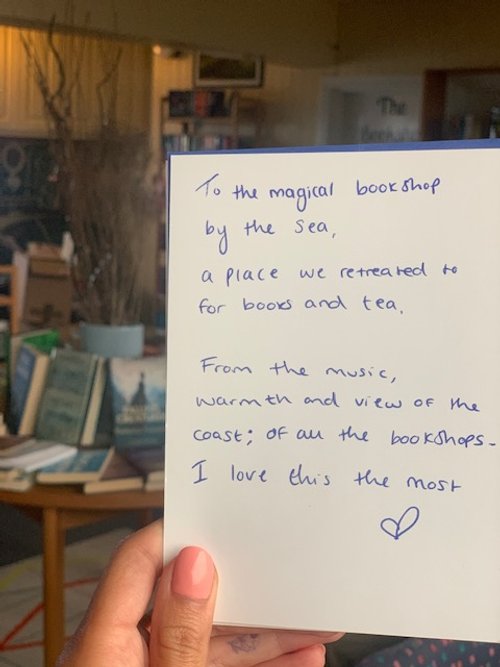 The
To the magical bookshop
by the sea,
a place we retreated to
for books and tea.
From the music,
warmth and view of the
coast; of all the bookshops-
I love this the most